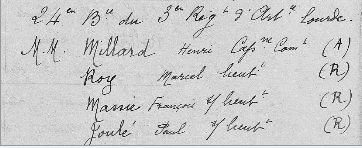 24en Bie du 3en Régt d'Artie Lourde.
M.M. Millard Henri Capne Comt (A)
Roy Marcel lieutt (R)
Massie François s/lieutt (R.)
Joulé Paul s/lieutt (R)